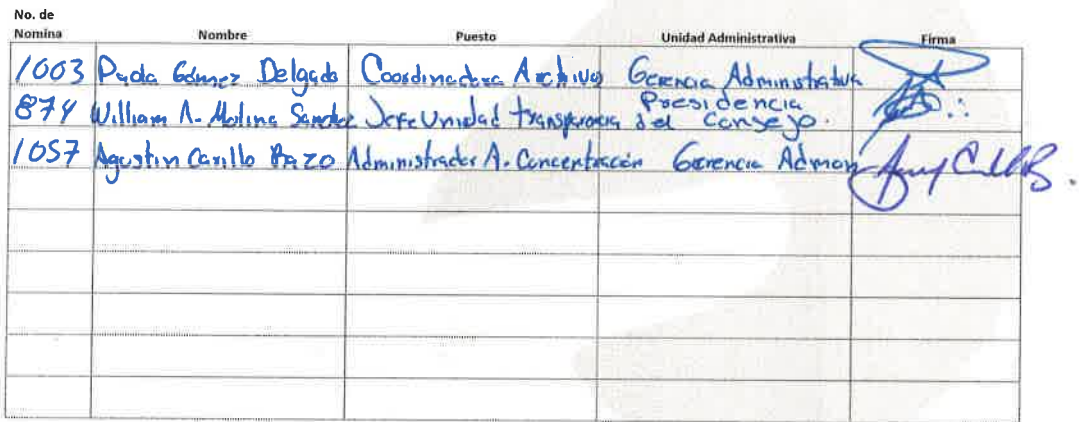 No. de
Nomina Nombre Puesto Unidad Administrativa Firma
1003 Paola Gómez Delgado Coordinadora Archivos Gerencia Administrativa
874 William A. Molina Sanchez Jefe Unidad transparencia Presidencia del Consejo.
1057 Agustin Carillo Administrador A. Concentración Gerencia Admon